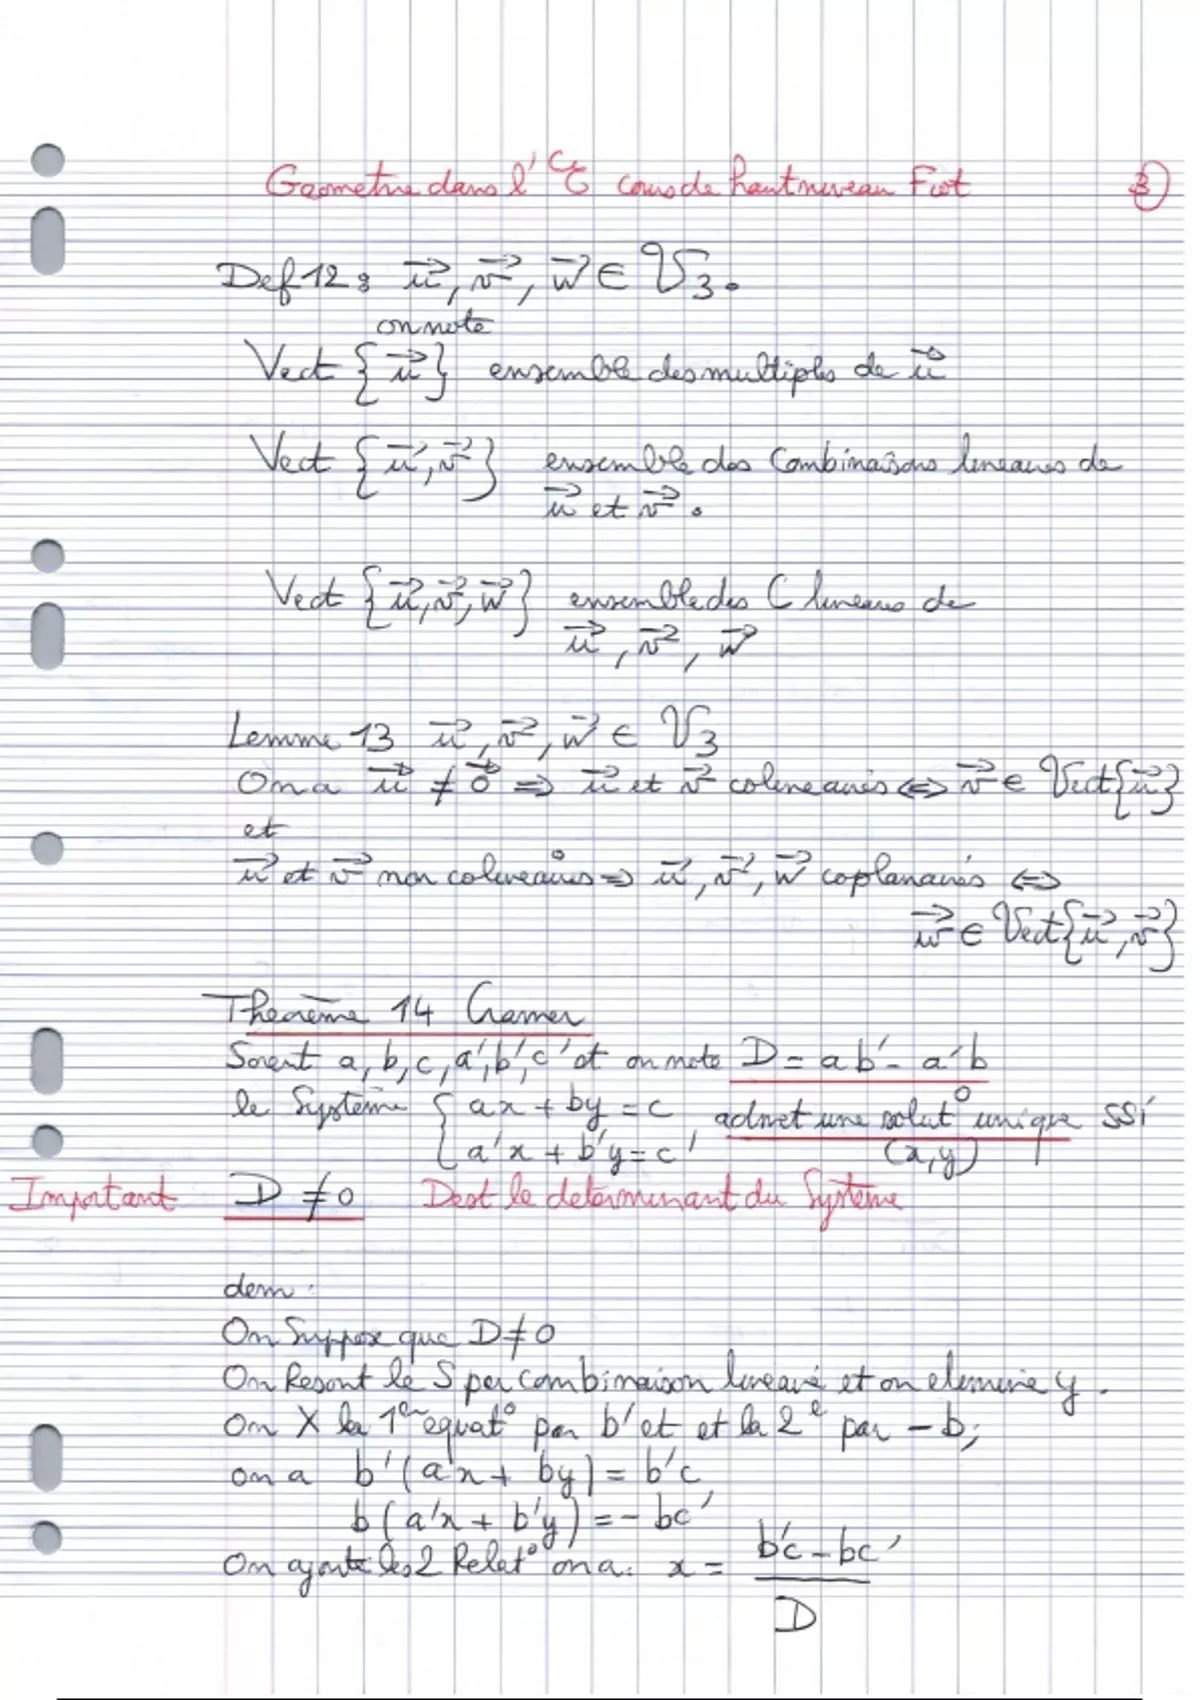 Geometrie dans l' cours de haut niveau Fiot 3
Def 12 : u⃗, v⃗, w⃗ ∈ V₃.
on note
Vect {u⃗} ensemble des multiples de u⃗
Vect {u⃗, v⃗} ensemble des Combinaisons lineaires de
u⃗ et v⃗.
Vect {u⃗, v⃗, w⃗} ensemble des C lineaires de
u⃗, v⃗, w⃗
Lemme 13 u⃗, v⃗, w⃗ ∈ V₃
On a u⃗ ≠ 0⃗ ⇒ u⃗ et v⃗ colineaires ⇔ v⃗ ∈ Vect{u⃗}
et
u⃗ et v⃗ non colineaires ⇒ u⃗, v⃗, w⃗ coplanaires ⇔
w⃗ ∈ Vect{u⃗, v⃗}
Theorème 14 Cramer
Soient a, b, c, a', b', c' et on note D = ab' - a'b
le Système { ax + by = c admet une solut° unique SSi
a'x + b'y = c' (x, y)
Important D ≠ 0 D est le determinant du Système
dem :
On Suppose que D ≠ 0
On Resout le S par combinaison lineaire et on elimine y.
On X la 1er equat° par b' et et la 2e par - b;
on a b'(ax + by) = b'c
b(a'x + b'y) = - bc'
On ajoute les 2 Relat° on a : x = b'c - bc'
D